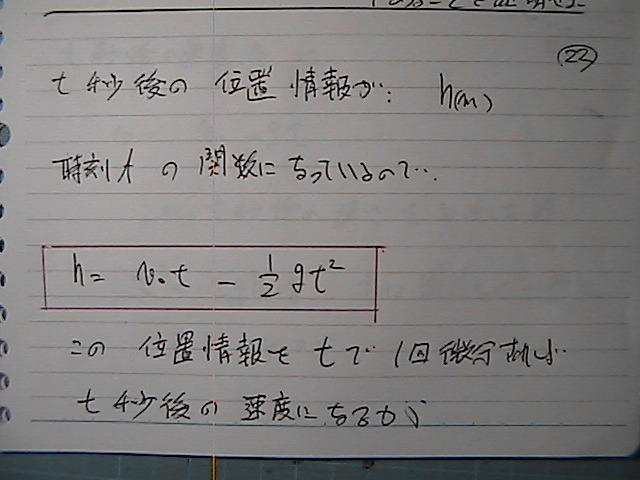 ㉒
t秒後の 位置 情報が: h(m)
時刻tの 関数になっているので…
h= v₀t − 1/2 gt²
この 位置情報を tで 1回微分すれば
t秒後の 速度になるが